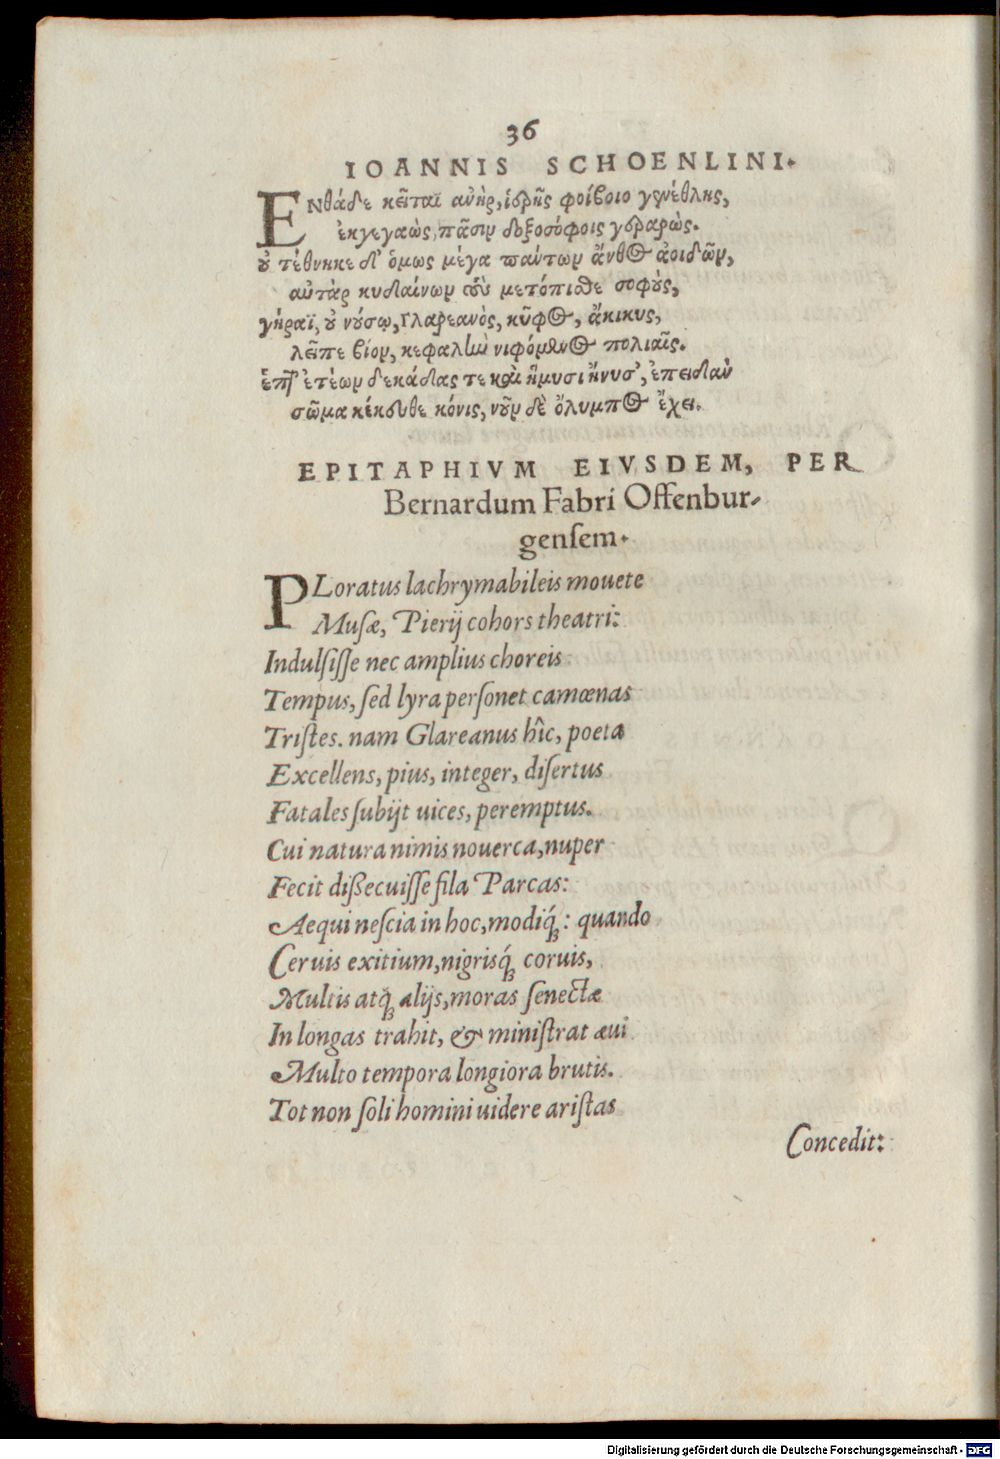 36
IOANNIS SCHOENLINI.
ΕΝθάδε κεῖται ἀνὴρ, ἱερῆς φοίβοιο γενέθλης,
ἐκγεγαὼς, πᾶσιν δοξοσόφοις γεραρὼς.
οὐ τέθνηκε δ' ὅμως μέγα πάντων ἄνθος ἀοιδῶν,
αὐτὰρ κυδαίνων εὖ μετόπισθε σοφοὺς,
γήραϊ, οὐ νούσῳ, γλαρεανὸς, κῦφος, ἄκικυς,
λεῖπε βίον, κεφαλὴν νιφόμενος πολιαῖς.
ἑπτ' ἐτέων δεκάδας τε καὶ ἥμυσι ἤνυσ', ἐπειδὰν
σῶμα κέκευθε κόνις, νοῦν δὲ ὄλυμπος ἔχει.
EPITAPHIVM EIVSDEM, PER
Bernardum Fabri Offenbur-
gensem.
PLoratus lachrymabileis mouete
Musæ, Pierij cohors theatri:
Indulsisse nec amplius choreis
Tempus, sed lyra personet camœnas
Tristes. nam Glareanus hîc, poeta
Excellens, pius, integer, disertus
Fatales subijt uices, peremptus.
Cui natura nimis nouerca, nuper
Fecit dißecuisse fila Parcas:
Aequi nescia in hoc, modiq́;: quando
Ceruis exitium, nigrisq́; coruis,
Multis atq; alijs, moras senectæ
In longas trahit, & ministrat æui
Multo tempora longiora brutis.
Tot non soli homini uidere aristas
Concedit:
Digitalisierung gefördert durch die Deutsche Forschungsgemeinschaft - DFG